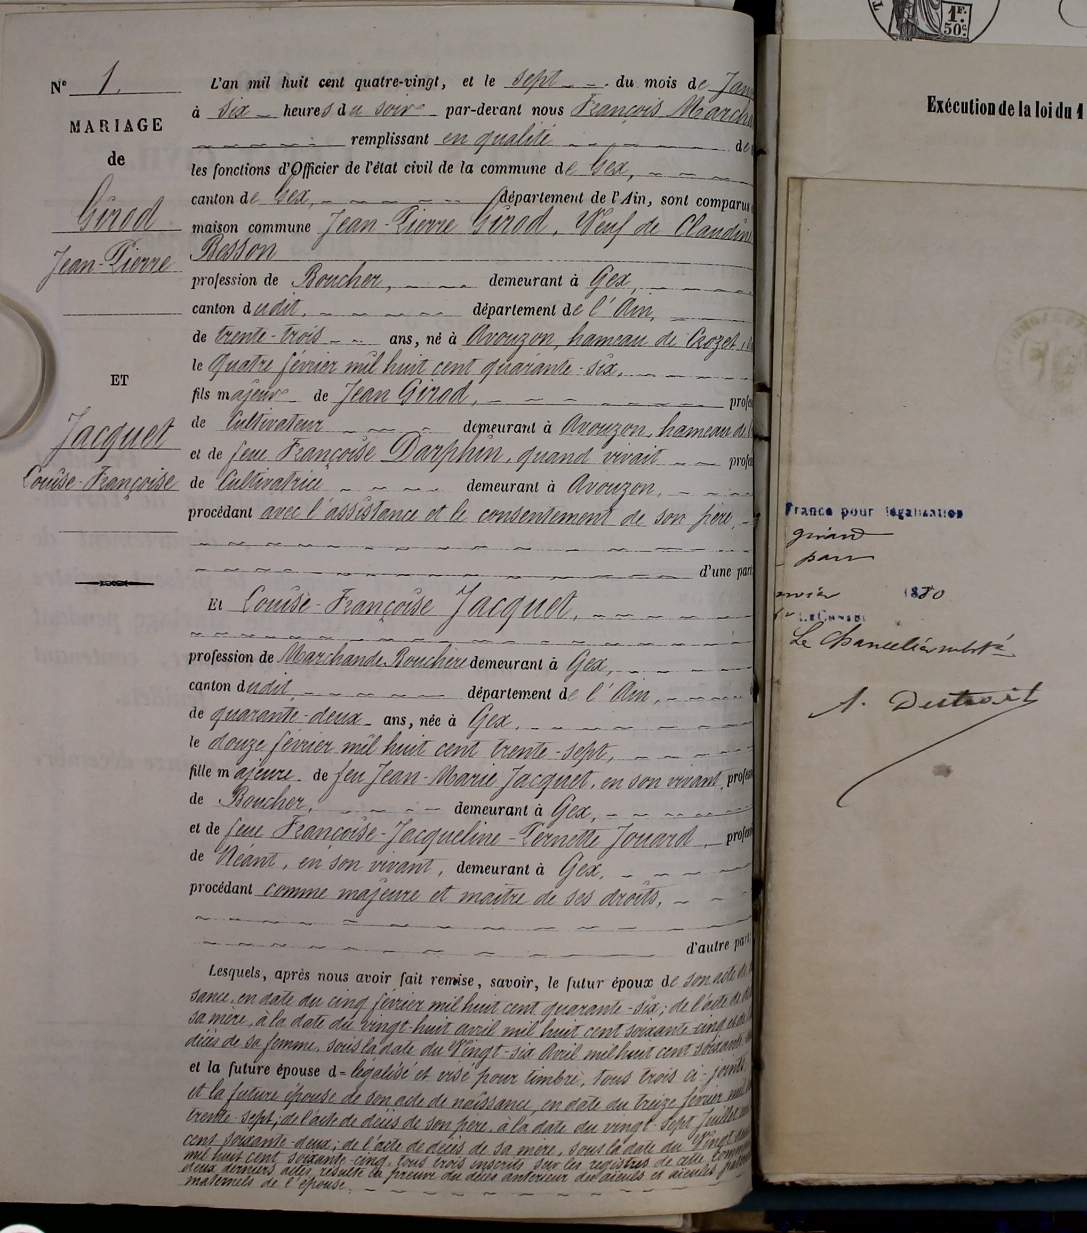 Nº 1.
MARIAGE
de
Girod
Jean-Pierre
ET
Jacquet
Louise-Françoise
L'an mil huit cent quatre-vingt, et le sept du mois de Jan
à six heures du soir par-devant nous François March
remplissant en qualité de
les fonctions d'Officier de l'état civil de la commune de Gex,
canton de Gex, département de l'Ain, sont comparus
maison commune Jean-Pierre Girod, Veuf de Claudine
Besson
profession de Boucher, demeurant à Gex,
canton dudit, département de l'Ain,
de trente-trois ans, né à Avouzon, hameau de Crozet,
le quatre février mil huit cent quarante-six,
fils majeur de Jean Girod, profes
de Cultivateur demeurant à Avouzon, hameau de
et de feue Françoise Darphin, quand vivait profes
de Cultivatrice demeurant à Avouzon,
procédant avec l'assistance et le consentement de son père,
d'une part
Et Louise-Françoise Jacquet,
profession de Marchande Bouchère demeurant à Gex,
canton dudit département de l'Ain,
de quarante-deux ans, née à Gex,
le douze février mil huit cent trente-sept,
fille majeure de feu Jean-Marie Jacquet, en son vivant, profes
de Boucher, demeurant à Gex,
et de feue Françoise-Jacqueline-Pernette Jouard, profes
de Néant, en son vivant, demeurant à Gex,
procédant comme majeure et maître de ses droits,
d'autre part
Lesquels, après nous avoir fait remise, savoir, le futur époux de son acte de
sance, en date du cinq février mil huit cent quarante-six; de l'acte de
sa mère, à la date du vingt-huit avril mil huit cent soixante-cinq et de
décès de sa femme, sous la date du Vingt-six Avril mil huit cent soixante
et la future épouse d= légalisé et visé pour timbre, tous trois ci-joints,
et la future épouse de son acte de naissance, en date du treize février mil
trente-sept; de l'acte de décès de son père, à la date du vingt-sept Juillet
cent soixante-deux; de l'acte de décès de sa mère, sous la date du Vingt
mil huit cent soixante-cinq, tous trois inscrits sur les registres de cette Comm
deux derniers actes, résulte la preuve du décès antérieur des aïeuls et aïeules pater
maternels de l'épouse.
1F.
50c
Exécution de la loi du 1
France pour légalisation
1880
Le Chancelier substé
A. Destroit